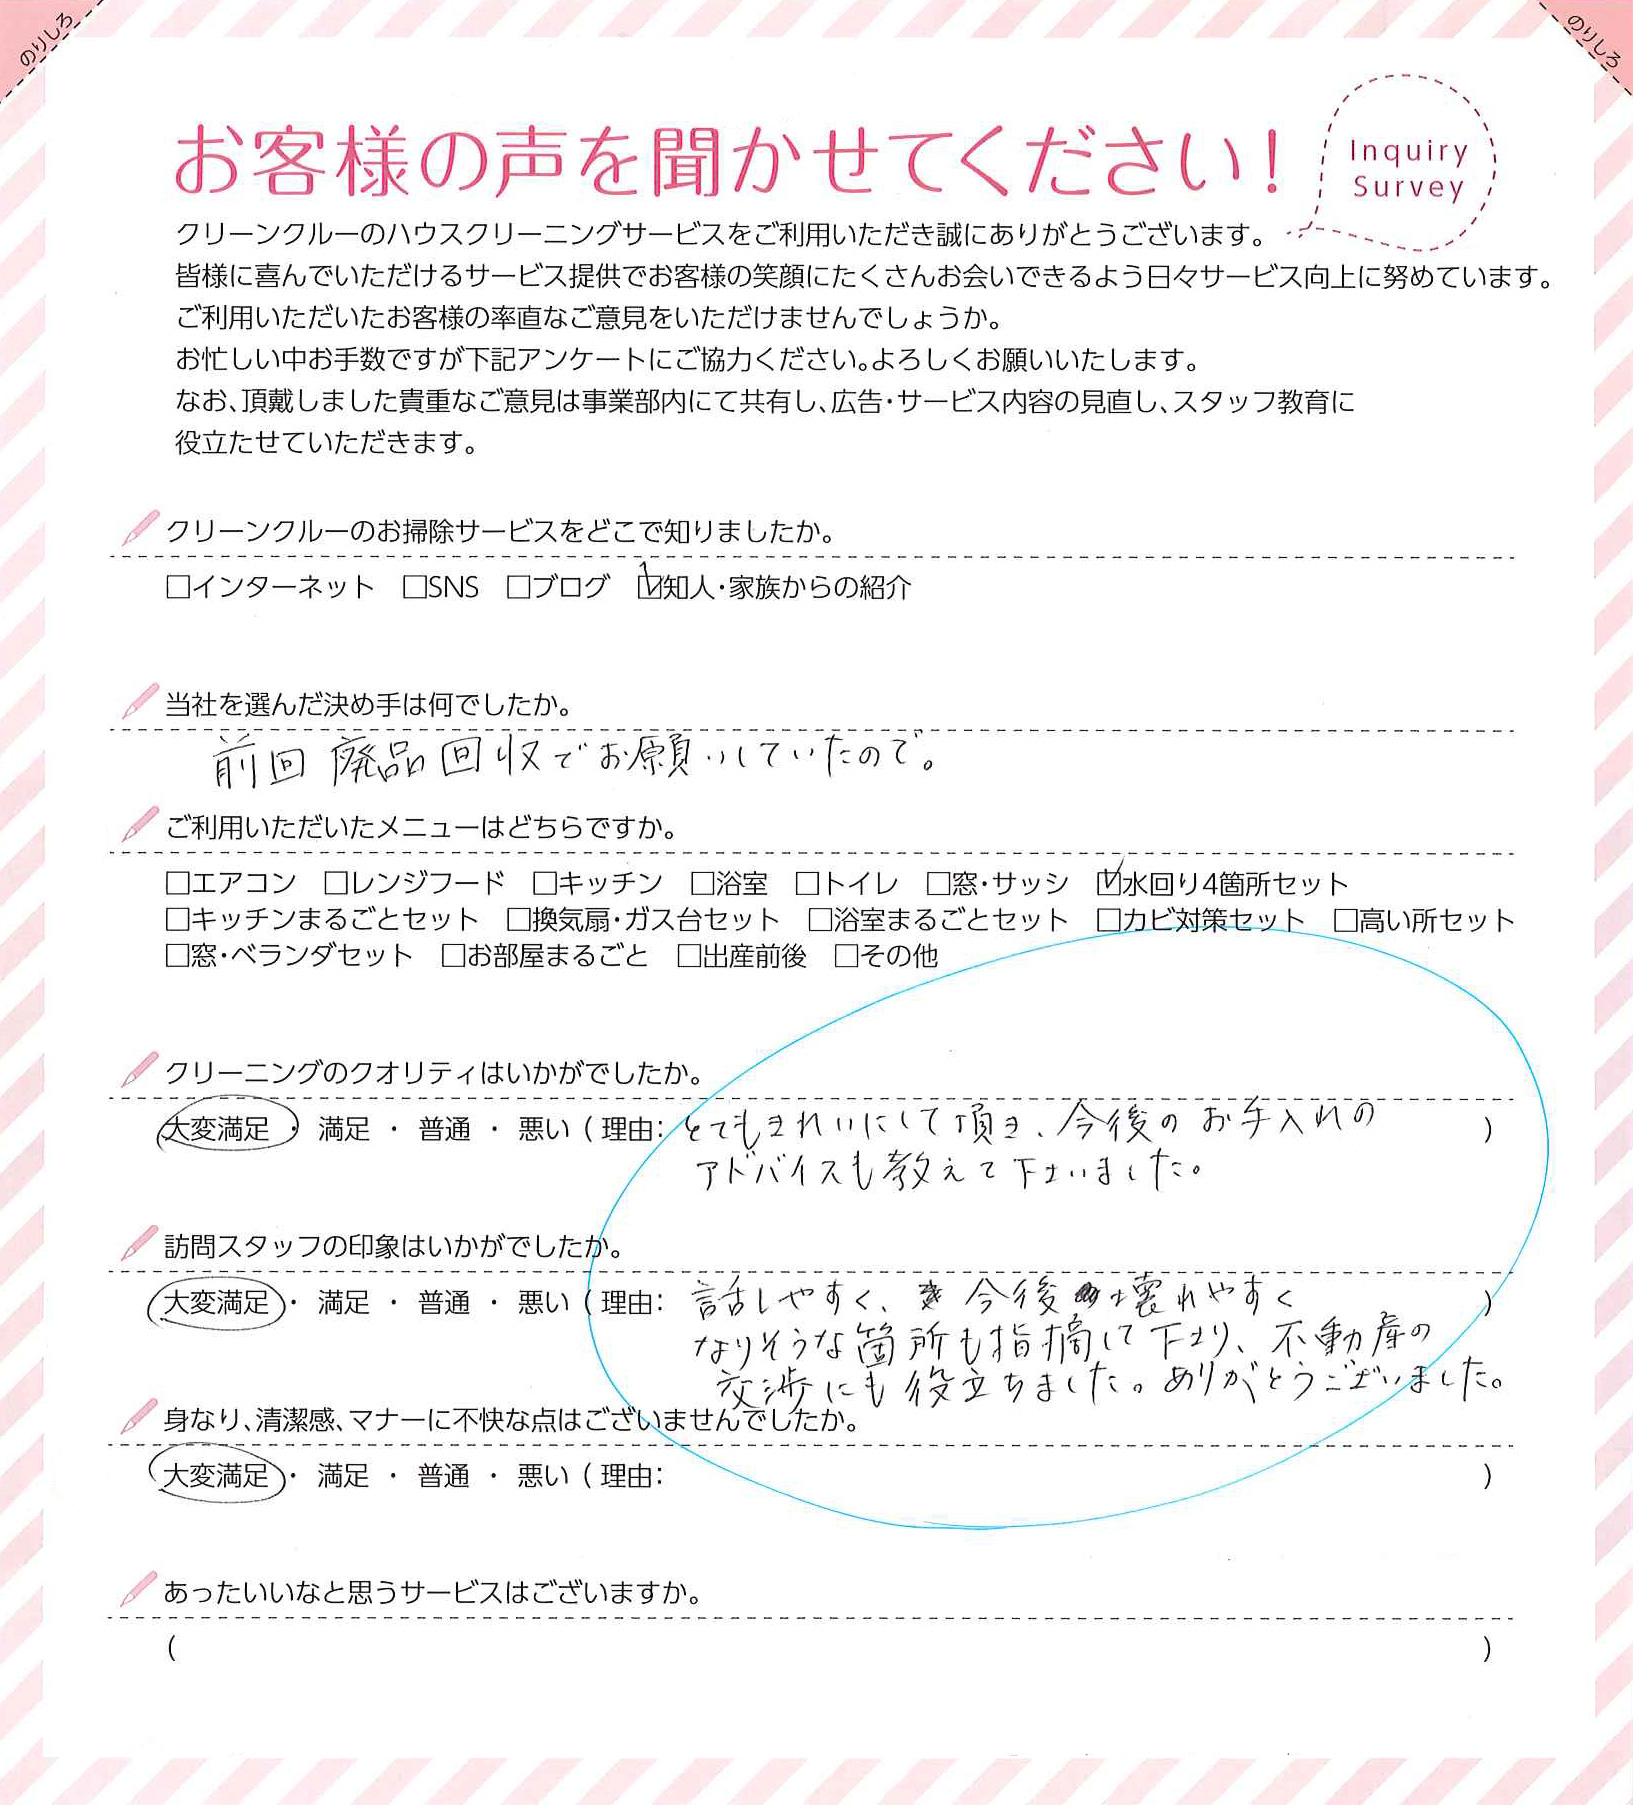 のりしろ
のりしろ
お客様の声を聞かせてください！
Inquiry
Survey
クリーンクルーのハウスクリーニングサービスをご利用いただき誠にありがとうございます。
皆様に喜んでいただけるサービス提供でお客様の笑顔にたくさんお会いできるよう日々サービス向上に努めています。
ご利用いただいたお客様の率直なご意見をいただけませんでしょうか。
お忙しい中お手数ですが下記アンケートにご協力ください。よろしくお願いいたします。
なお、頂戴しました貴重なご意見は事業部内にて共有し、広告・サービス内容の見直し、スタッフ教育に
役立たせていただきます。
クリーンクルーのお掃除サービスをどこで知りましたか。
□インターネット □SNS □ブログ ☑知人・家族からの紹介
当社を選んだ決め手は何でしたか。
前回廃品回収でお願いしていたので。
ご利用いただいたメニューはどちらですか。
□エアコン □レンジフード □キッチン □浴室 □トイレ □窓・サッシ ☑水回り4箇所セット
□キッチンまるごとセット □換気扇・ガス台セット □浴室まるごとセット □カビ対策セット □高い所セット
□窓・ベランダセット □お部屋まるごと □出産前後 □その他
クリーニングのクオリティはいかがでしたか。
大変満足 ・ 満足 ・ 普通 ・ 悪い ( 理由： とてもきれいにして頂き、今後のお手入れの )
アドバイスも教えて下さいました。
訪問スタッフの印象はいかがでしたか。
大変満足 ・ 満足 ・ 普通 ・ 悪い ( 理由： 話しやすく、今後壊れやすく )
なりそうな箇所も指摘して下さり、不動産の
交渉にも役立ちました。ありがとうございました。
身なり、清潔感、マナーに不快な点はございませんでしたか。
大変満足 ・ 満足 ・ 普通 ・ 悪い ( 理由： )
あったいいなと思うサービスはございますか。
( )